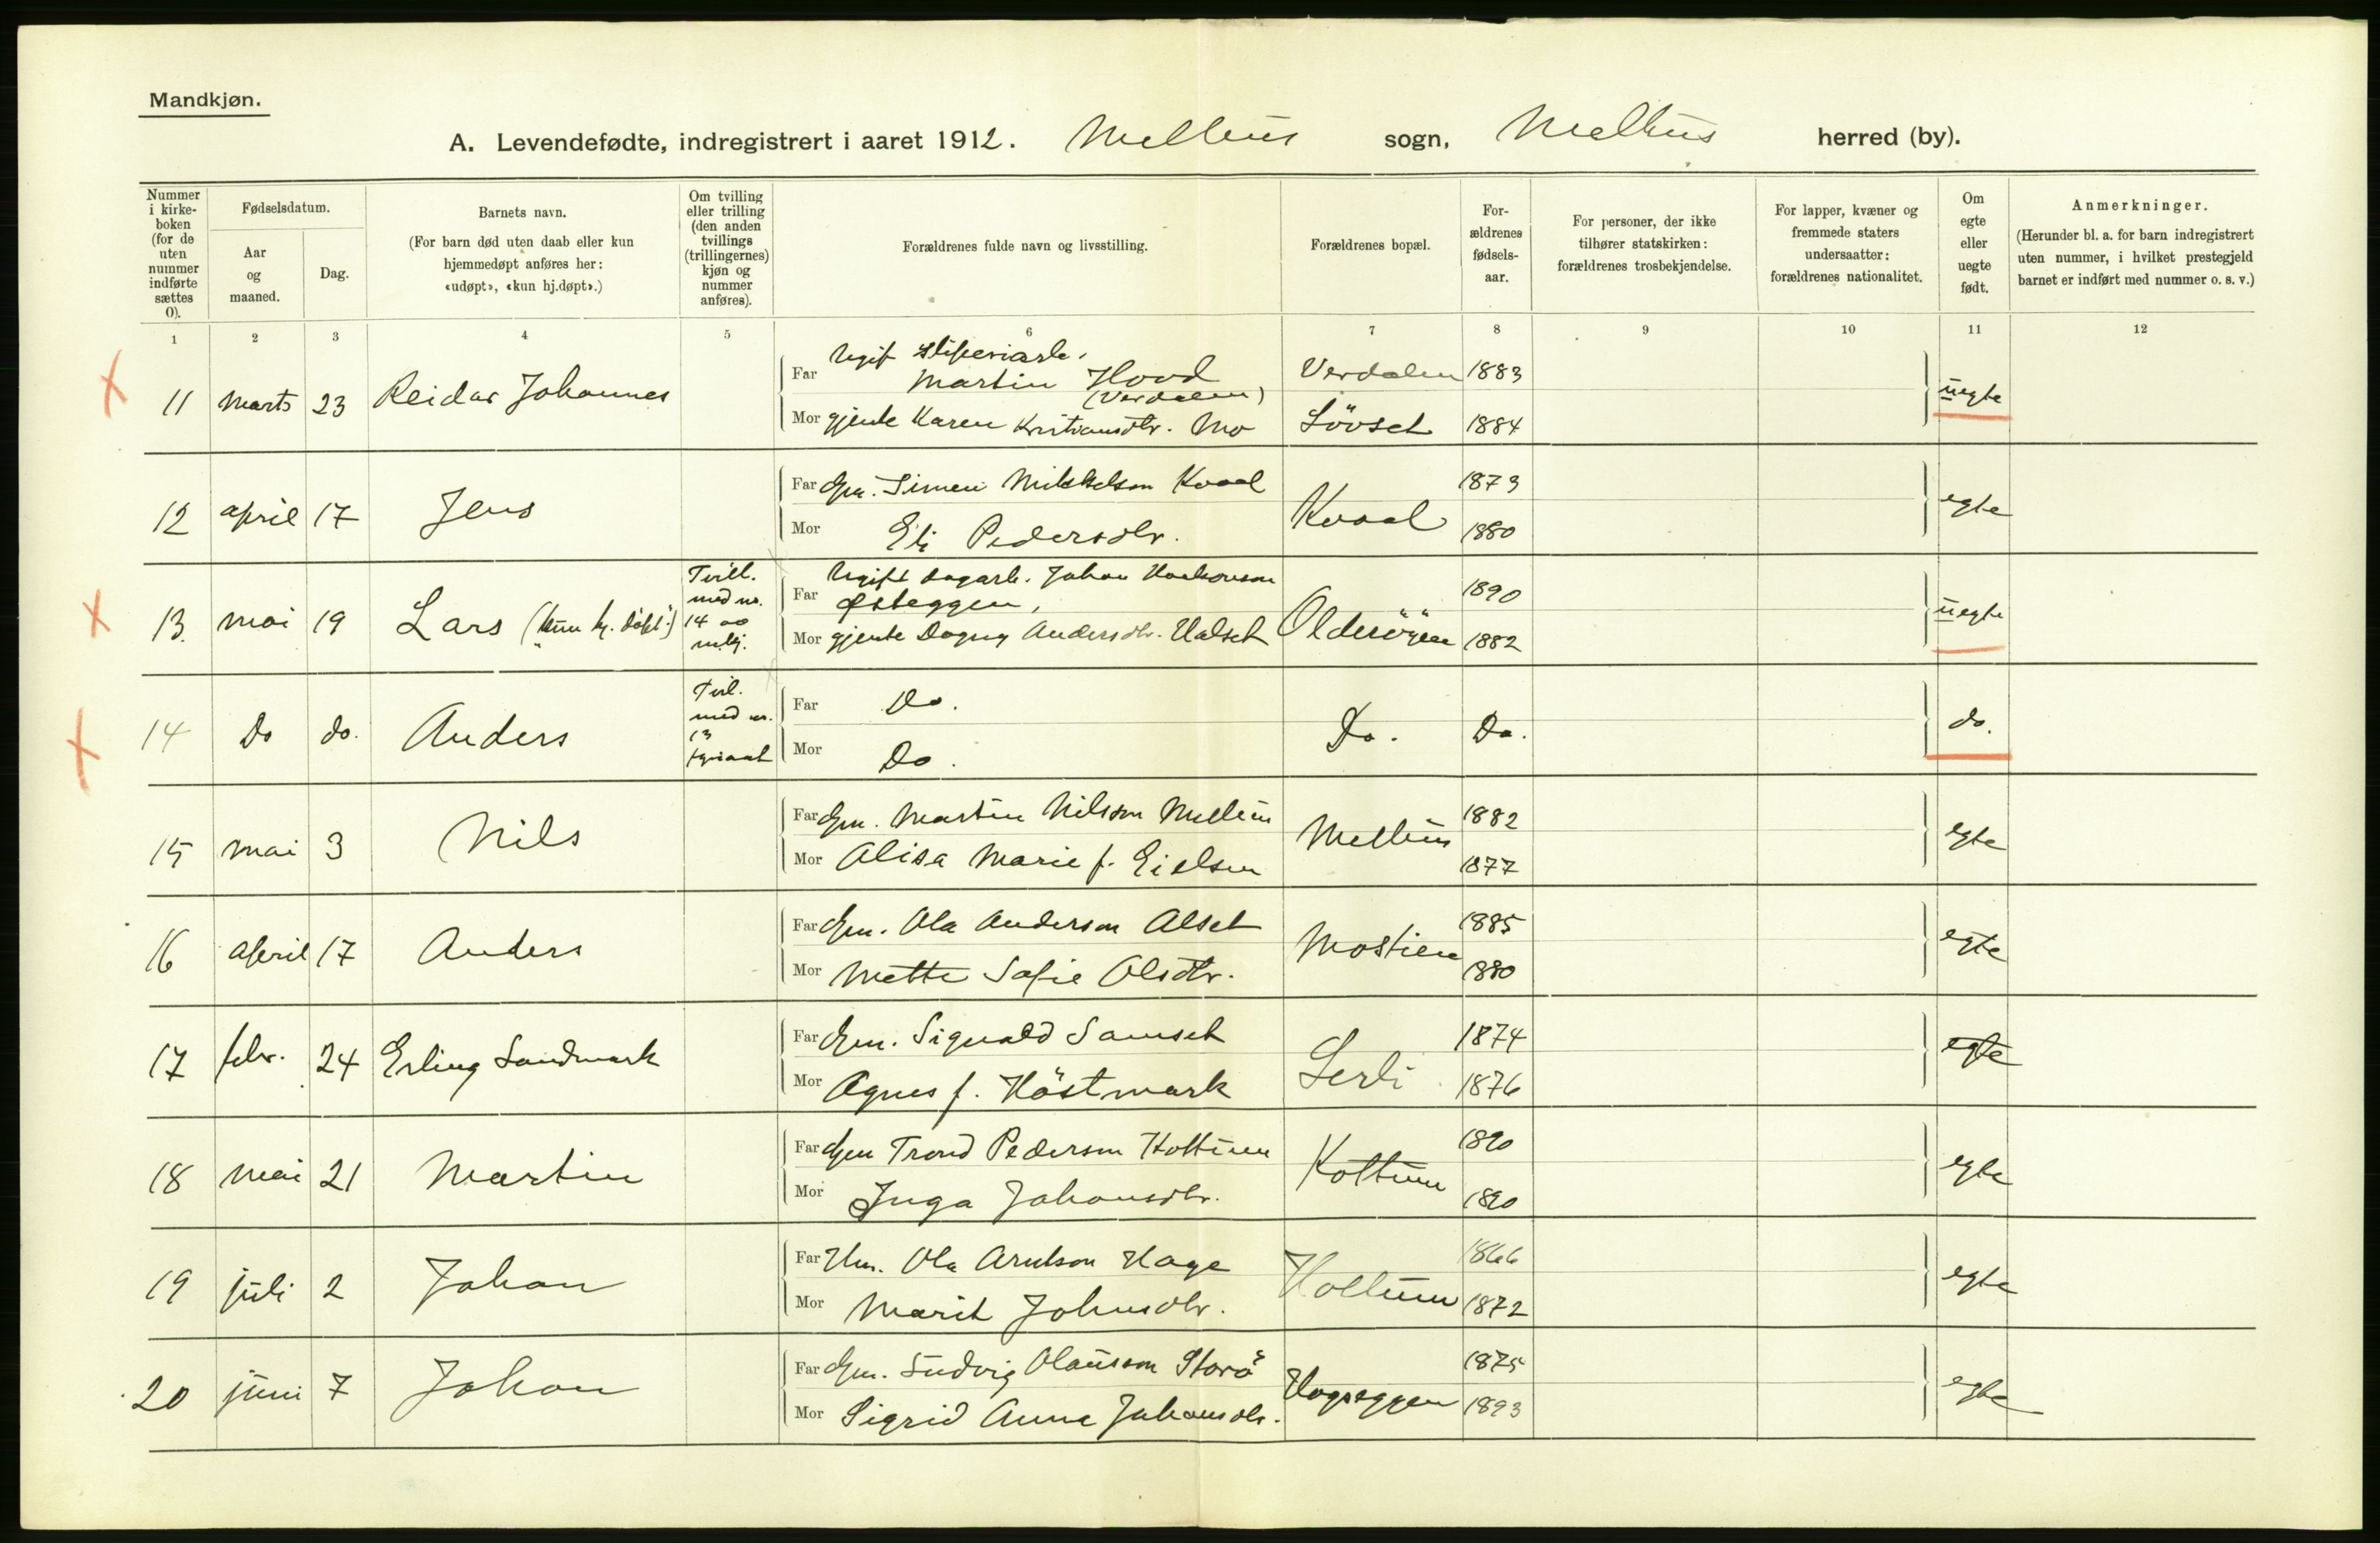 Mandkjøn.
A. Levendefødte, indregistrert i aaret 1912. Melhus sogn, Melhus herred (by).
Nummer i kirke-boken (for de uten nummer indførte sættes 0).
Fødselsdatum.
Aar og maaned.
Dag.
Barnets navn.
(For barn død uten daab eller kun hjemmedøpt anføres her: «udøpt», «kun hj.døpt».)
Om tvilling eller trilling (den anden tvillings (trillingernes) kjøn og nummer anføres).
Forældrenes fulde navn og livsstilling.
Forældrenes bopæl.
For-ældrenes fødsels-aar.
For personer, der ikke tilhører statskirken: forældrenes trosbekjendelse.
For lapper, kvæner og fremmede staters undersaatter: forældrenes nationalitet.
Om egte eller uegte født.
Anmerkninger.
(Herunder bl. a. for barn indregistrert uten nummer, i hvilket prestegjeld barnet er indført med nummer o. s. v.)
1 2 3 4 5 6 7 8 9 10 11 12
11 marts 23 Reidar Johannes Far Ugift
Martin (Verdalen) Verdalen 1883 uegte
Mor gjente Karen Kristiansdtr. Mo Lövset 1884
12 april 17 Jens Far Gm. Simen Kvaal Kvaal 1873 egte
Mor Eli Pedersdtr. 1880
13. mai 19 Lars (kun hj. döpt) Tvill. med nr. 14 Far Ugift dagarb. Johan
Østeggen, 1890 uegte
Mor gjente Dagny Andersdtr. Halset 1882
14 Do do. Anders Tvil. med nr. 13 Far Do. Do. Do. do.
Mor Do.
15 mai 3 Nils Far Gm. Martin Nilsson Melhus Melhus 1882 egte
Mor Alisa Marie f. Eielsen 1877
16 april 17 Anders Far Gm. Ola Anderson Alset Mostien 1885 egte
Mor Mette Sofie Olsdtr. 1880
17 febr. 24 Erling Sandmark Far Gm. Sigvald Samset Lerli 1874 egte
Mor Agnes f. Höstmark 1876
18 mai 21 Martin Far Gm Trond Pederson Kottum 1890 egte
Mor Inga Johansdtr. 1890
19 juli 2 Johan Far Ola Arntson Hage 1866 egte
Mor Marit Johnsdtr. 1872
20 juni 7 Johan Far Gm. Ludvig Olausson Storö Hogseggen 1875 egte
Mor Sigrid Anna Johansdtr. 1893